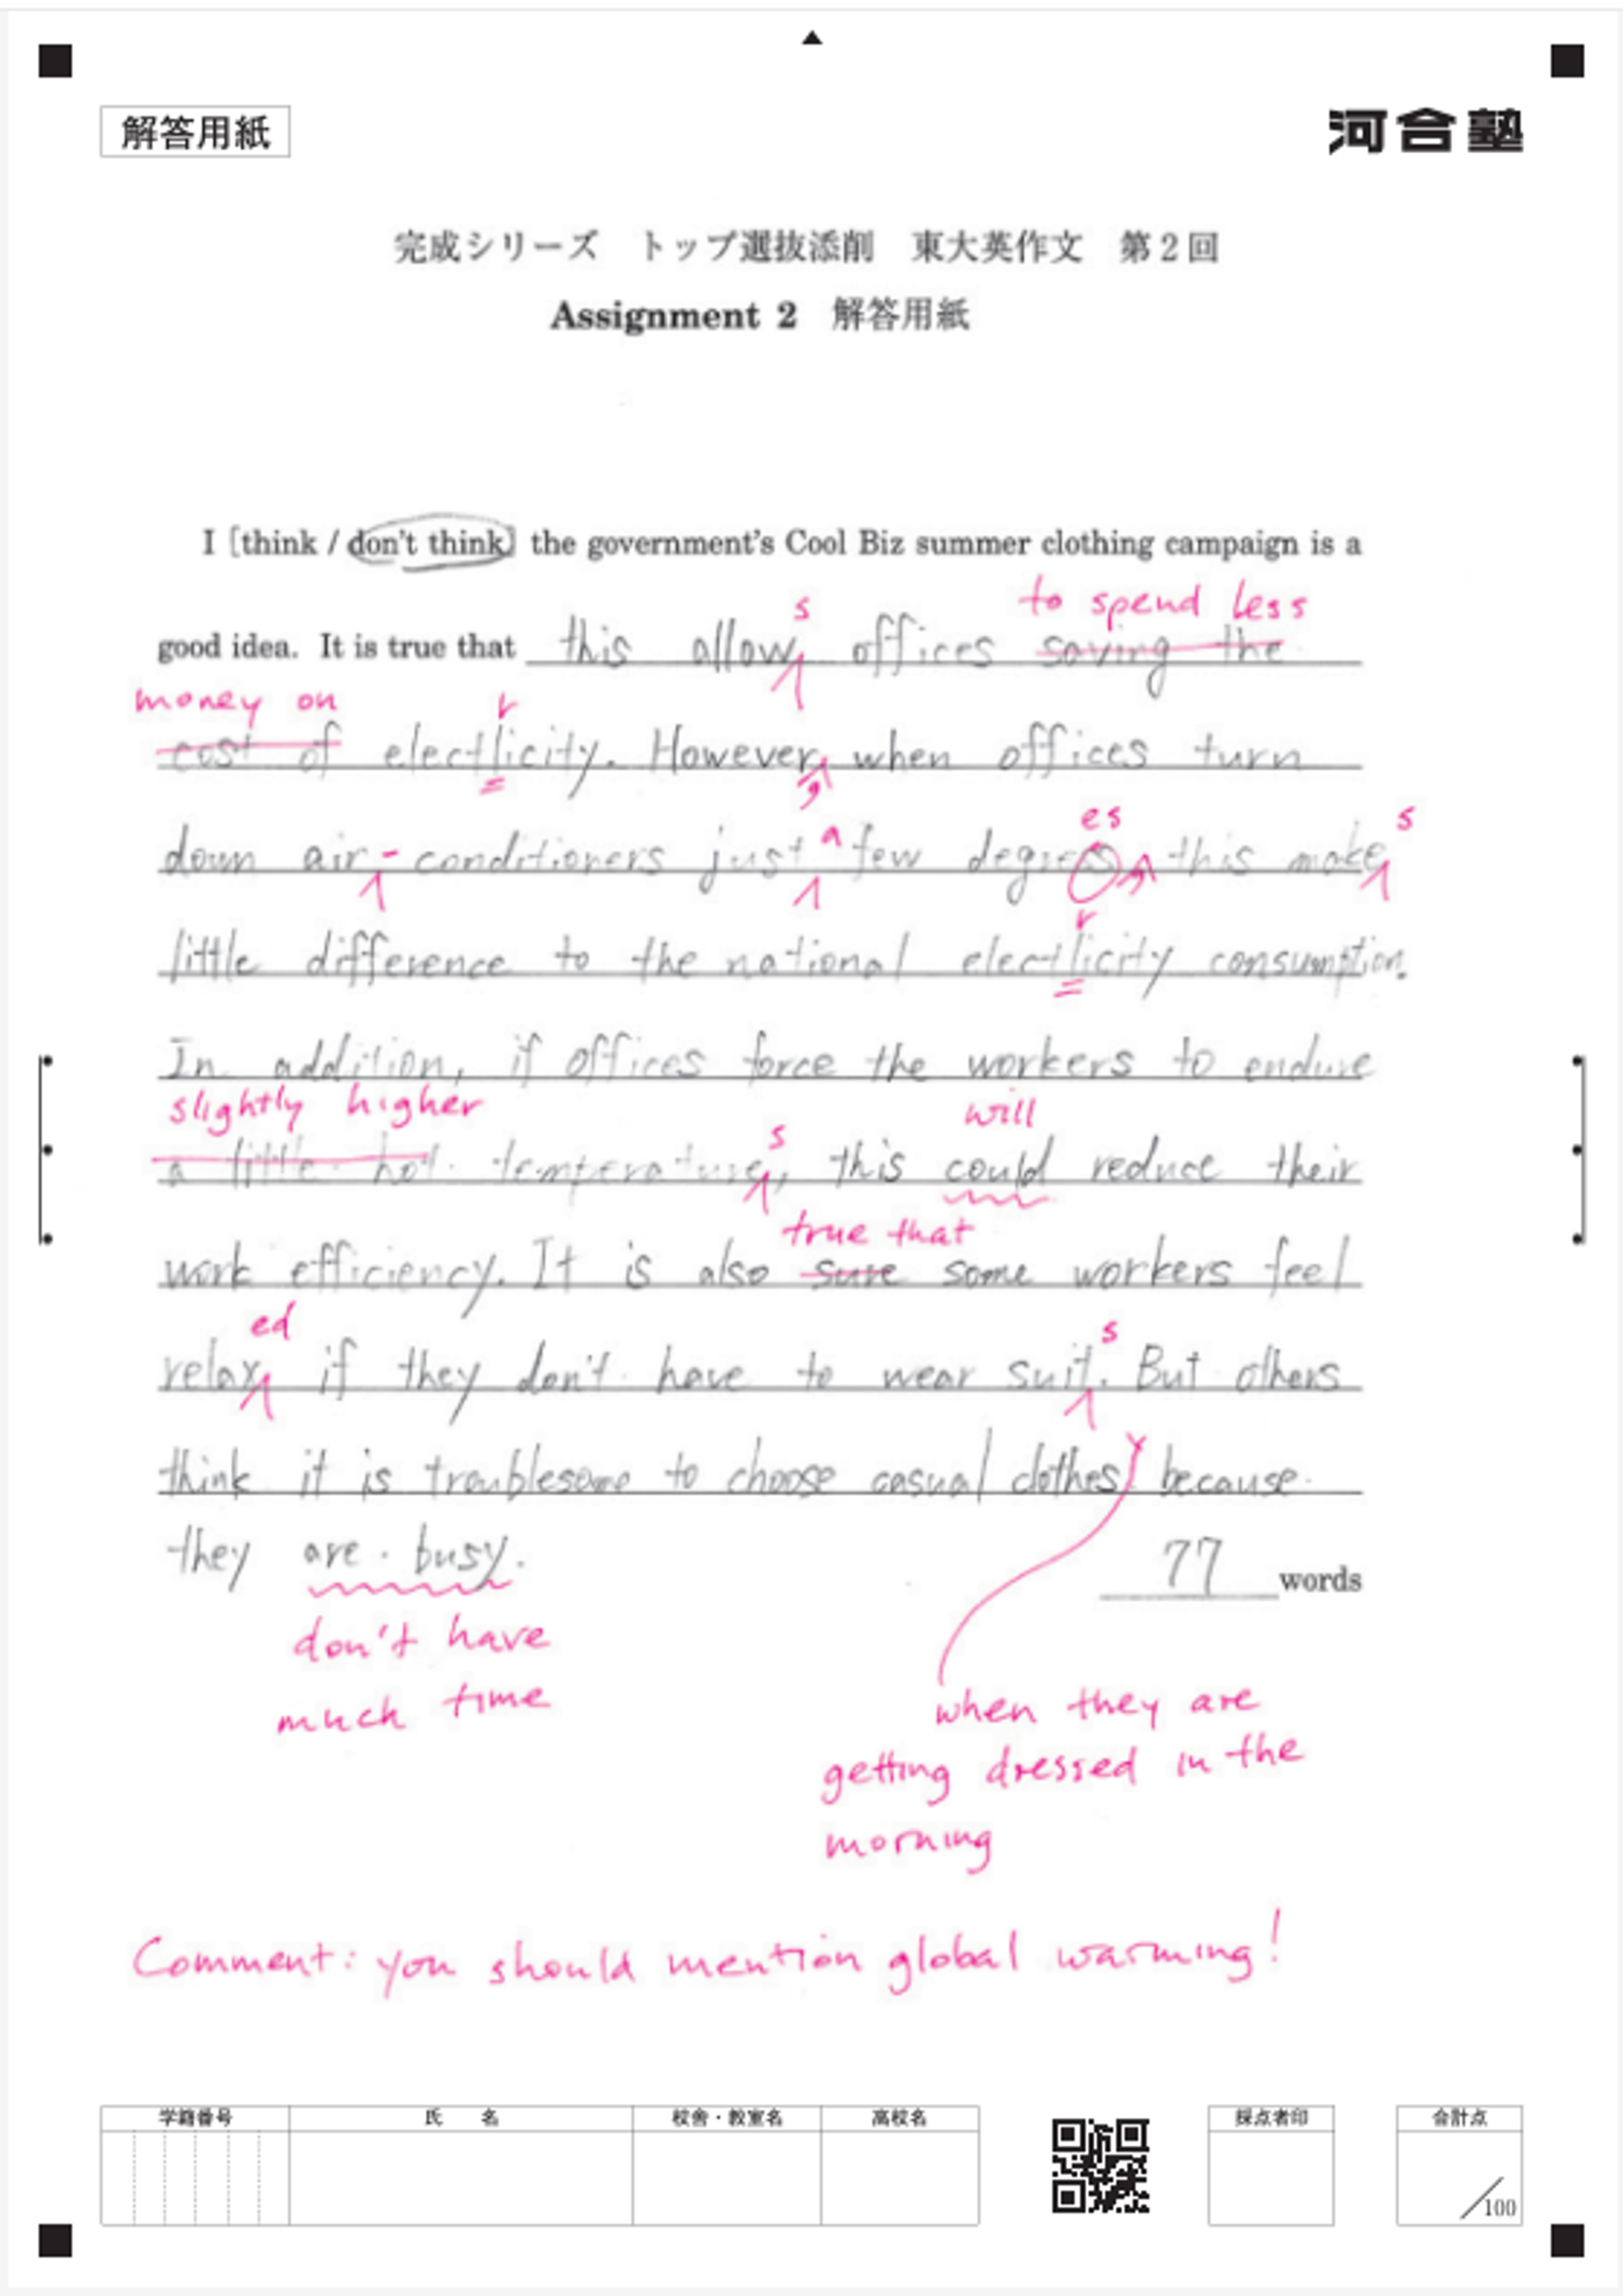 解答用紙
河合塾
完成シリーズ トップ選抜添削 東大英作文 第2回
Assignment 2 解答用紙
I [think / don't think] the government's Cool Biz summer clothing campaign is a
s to spend less
good idea. It is true that this allow offices saving the
money on r
cost of electlicity. However, when offices turn
,
a es s
down air - conditioners just few degrees, this make
r
little difference to the national electlicity consumption.
In addition, if offices force the workers to endure
slightly higher s will
a little hot temperature, this could reduce their
true that
work efficiency. It is also sure some workers feel
ed s
relax if they don't have to wear suit. But others
think it is troublesome to choose casual clothes because
they are busy.
77 words
don't have
much time
when they are
getting dressed in the
morning
Comment: you should mention global warming!
学籍番号 氏 名 校舎・教室名 高校名 採点者印 合計点
/100